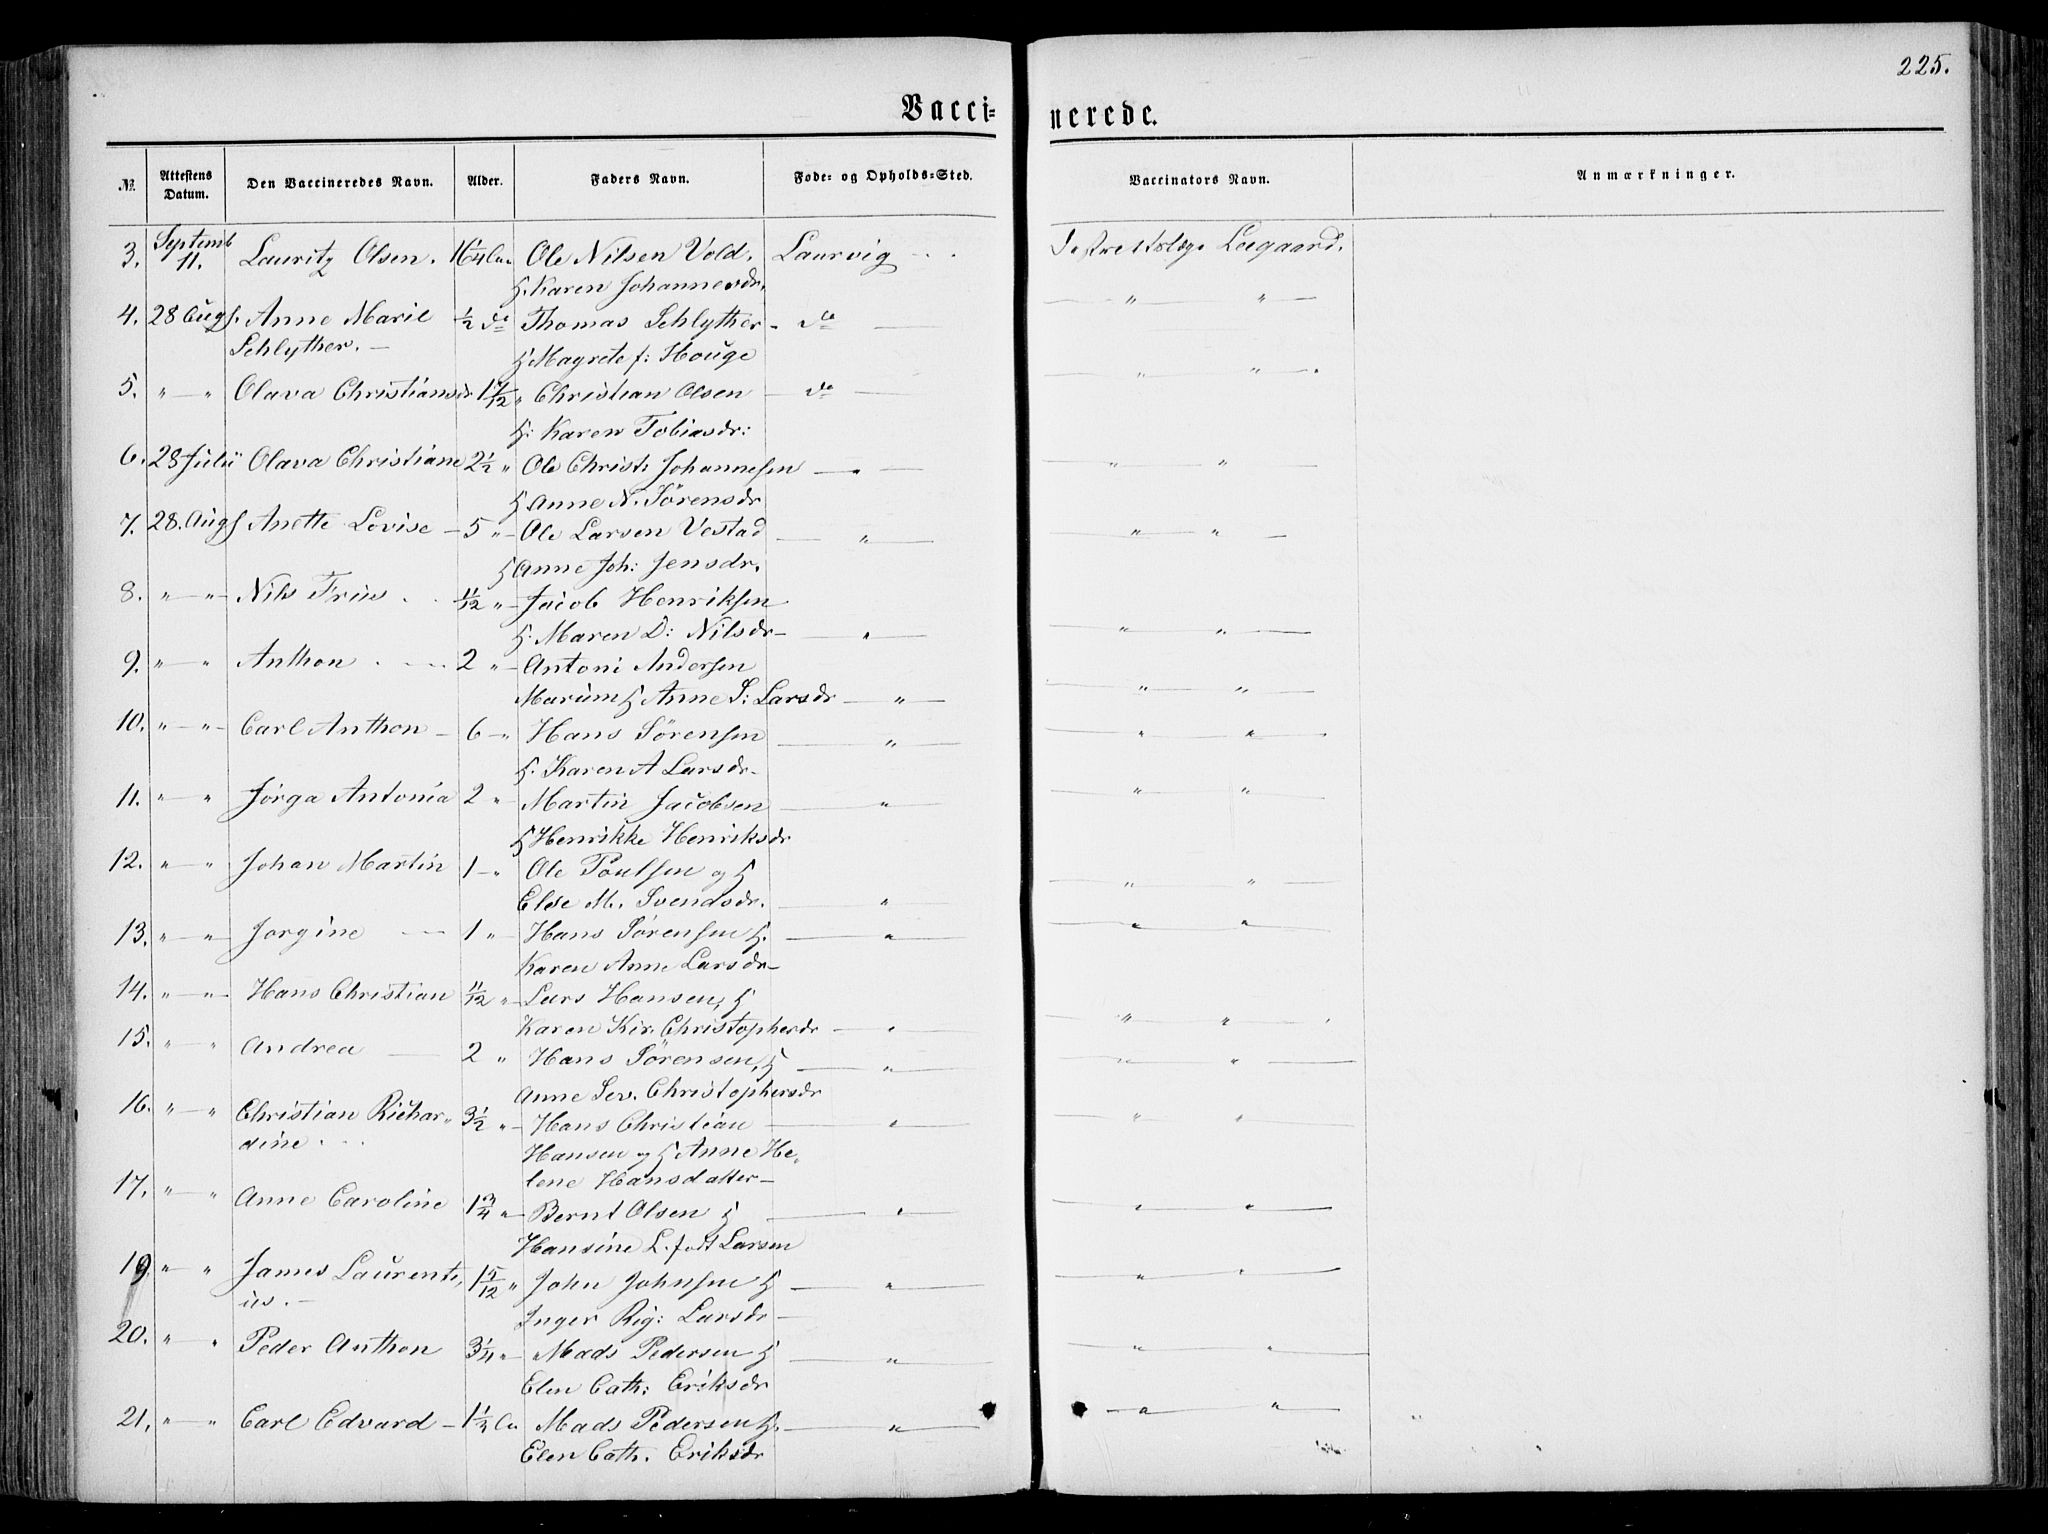 225.
Vacci=
nerede.
№ Attestens Datum. Den Vaccineredes Navn. Alder. Faders Navn. Føde- og Opholds-Sted. Vaccinators Navn. Anmærkninger.
3. Septemb 11. Lauritz Olsen. Ole Nilsen Vold. Laurvig Legaard.
H. Karen Johannesdr.
4. 28 Aug Anne Marie ½ do Thomas Schlyther - do — " "
Schlyther. — H Magrete f: Houge
5. " — " Olava Christiansdr 1 1/12 " Christian Olsen — do — " "
H: Karen Tobiasdr:
6. 28 Juli Olava Christiane 2½ " Ole Christ: Johannesen — " — " "
H Anne N. Sörensdr
7. 28. Aug Anette Lovise — 5 " Ole Larsen Vestad — " — " "
H Anne Joh: Jensdr.
8. " — " Nils 11/12 " Jacob Henriksen
H. Maren D: Nilsdr — " — " "
9. " — " Anthon 2 " Antoni Andersen
H Anne S: Larsdr — " — " "
10. " — " Carl Anthon — 6 — " Hans Sörensen — " — " "
H. Karen A Larsdr —
11. " — " Jörga Antonia 2 " Martin Jacobsen — " — " "
H Henrikke Henriksdr
12. " — " Johan Martin 1 — " Ole Poulsen og H
Else M. Svendsdr. — " — " "
13. " — " Jorgine 1 " Hans Sörensen H. — " — " "
Karen Anne Larsdr —
14. " — " Hans Christian 11/12 " Lars Hansen, H
Karen Kir. Christophersdr — " — " "
15. " — " Andrea — 2 " Hans Sörensen, H — " — " "
Anne Sev. Christophersdr
16. " — " Christian Richar- 3½ " Hans Christian — " — " "
dine. Hansen og H Anne He-
lene Hansdatter —
17. " — " Anne Caroline 1¾ " Bernt Olsen H — " — " "
Hansine L. født Larsen
19 " — " James Laurenti- 1 5/12 " John Johnsen H — " — " "
us. — Inger Rig: Larsdr —
20. " — " Peder Anthon 3¼ " Mads Pedersen H — " — " "
Elen Cath: Eriksdr
21. " — " Carl Edvard — Mads Pedersen H. — " — " "
Elen Cath. Eriksdr